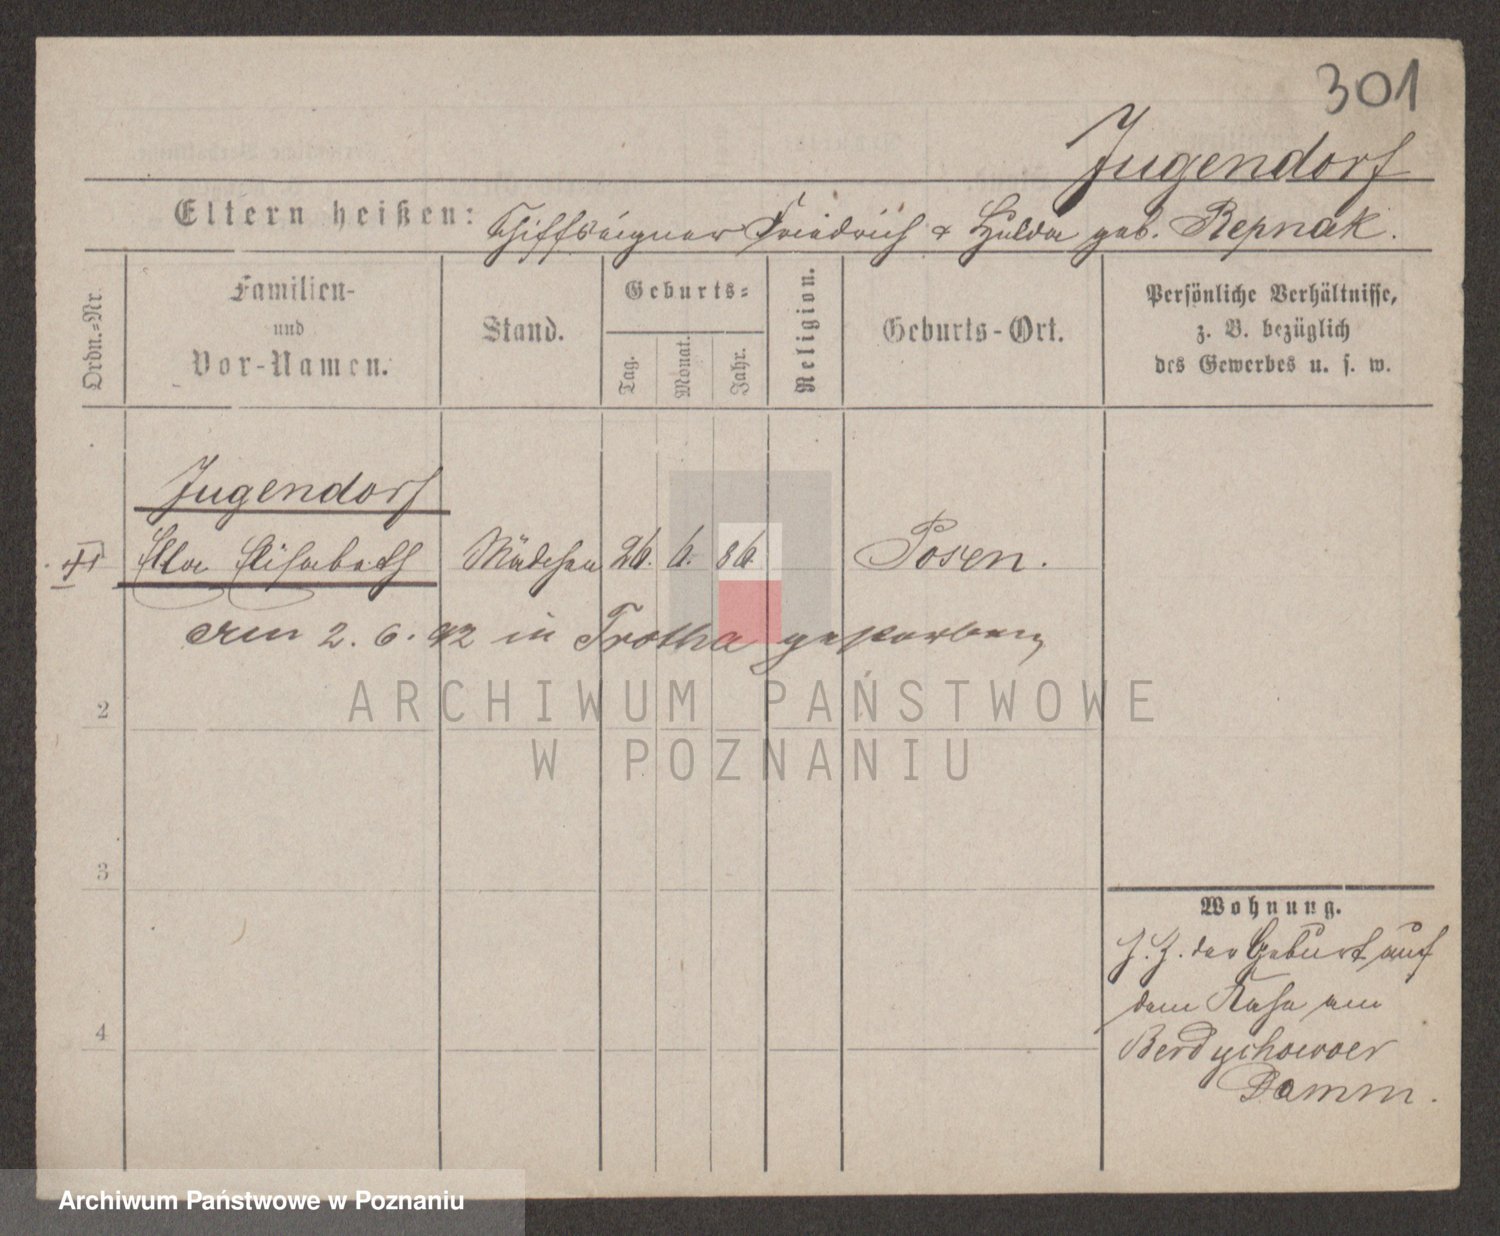 301
Jugendorf
Eltern heißen: Schiffseigner Friedrich & Hulda geb. Repnak.
Ordn.-Nr.
Familien-
und
Vor-Namen.
Stand.
Geburts-
Tag.
Monat.
Jahr.
Religion.
Geburts-Ort.
Persönliche Verhältnisse,
z. B. bezüglich
des Gewerbes u. s. w.
Jugendorf
Ella Elisabeth Mädchen 26. 6. 86 Posen.
Am 2. 6. 92 in Trotha gestorben
ARCHIWUM PAŃSTWOWE
W POZNANIU
2
3
4
Wohnung.
Z. Z. der Geburt auf
dem Kahn am
Berdychowoer
Damm.
Archiwum Państwowe w Poznaniu